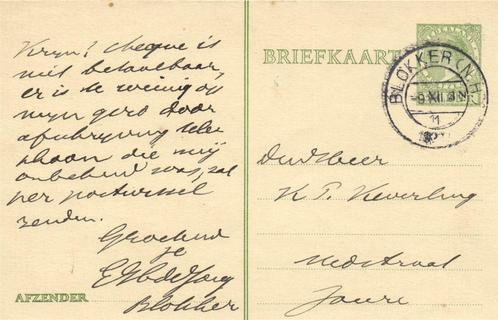 Kryn! cheque is
niet betaalbaar,
er is te weinig op
mijn giro door
afschrijving tele
phoon die mij
onbekend was, zal
per postwissel
zenden.
Groetend
Blokker
AFZENDER
BRIEFKAART
NEDERLAND
BLOKKER (N.H.)
-9 XII
11
den Heer
K. T. Keverling
Midstraat
Joure